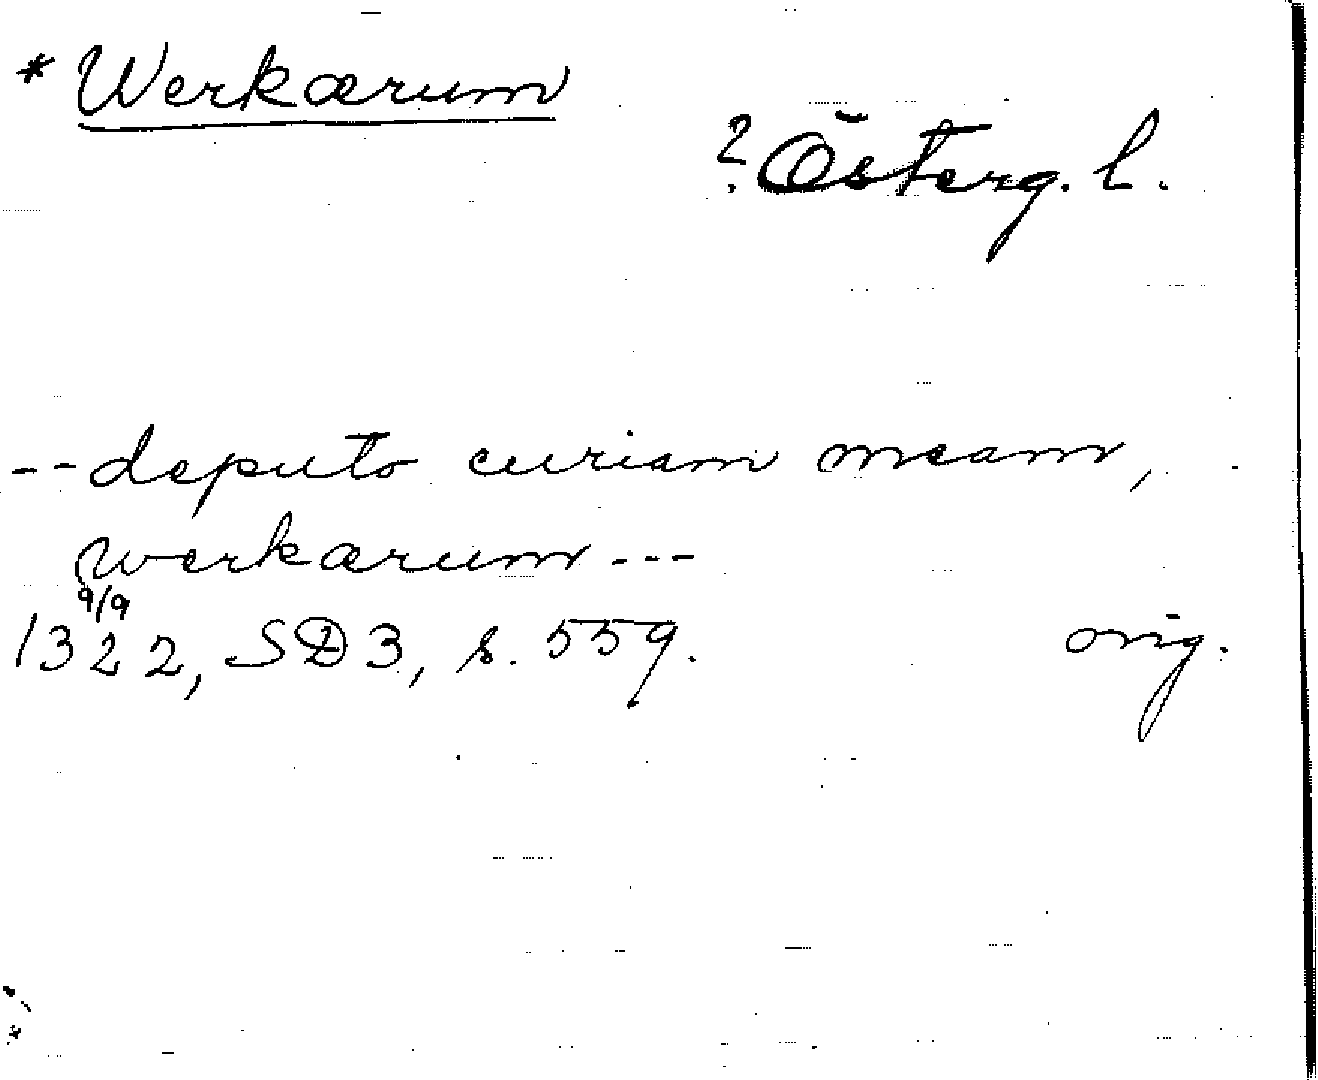 * Werkærum
? Österg. l.
-- deputo curiam meam,
werkærum ---
9/9
1322, SD3, s. 559. orig.